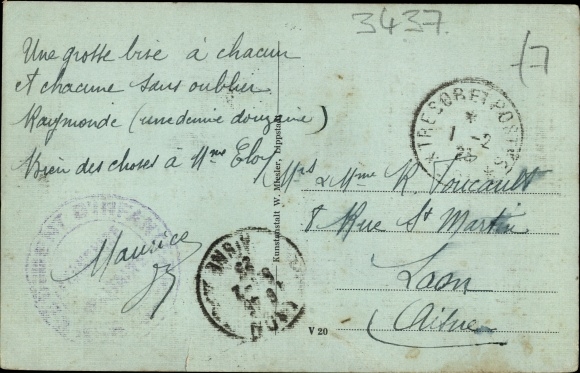 3437.
Une grosse bise à chacun
et chacune sans oublier
Raymonde (une demie douzaine)
Bien des choses à Mme Eloy
Maurice
Mrs & Mme R. Foucault
8 Rue St Martin
Laon
(Aisne)
TRESOR ET POSTES
1 -2
23
LAON
AISNE
Kunstanstalt W. Mesler, Lippstadt
V 20